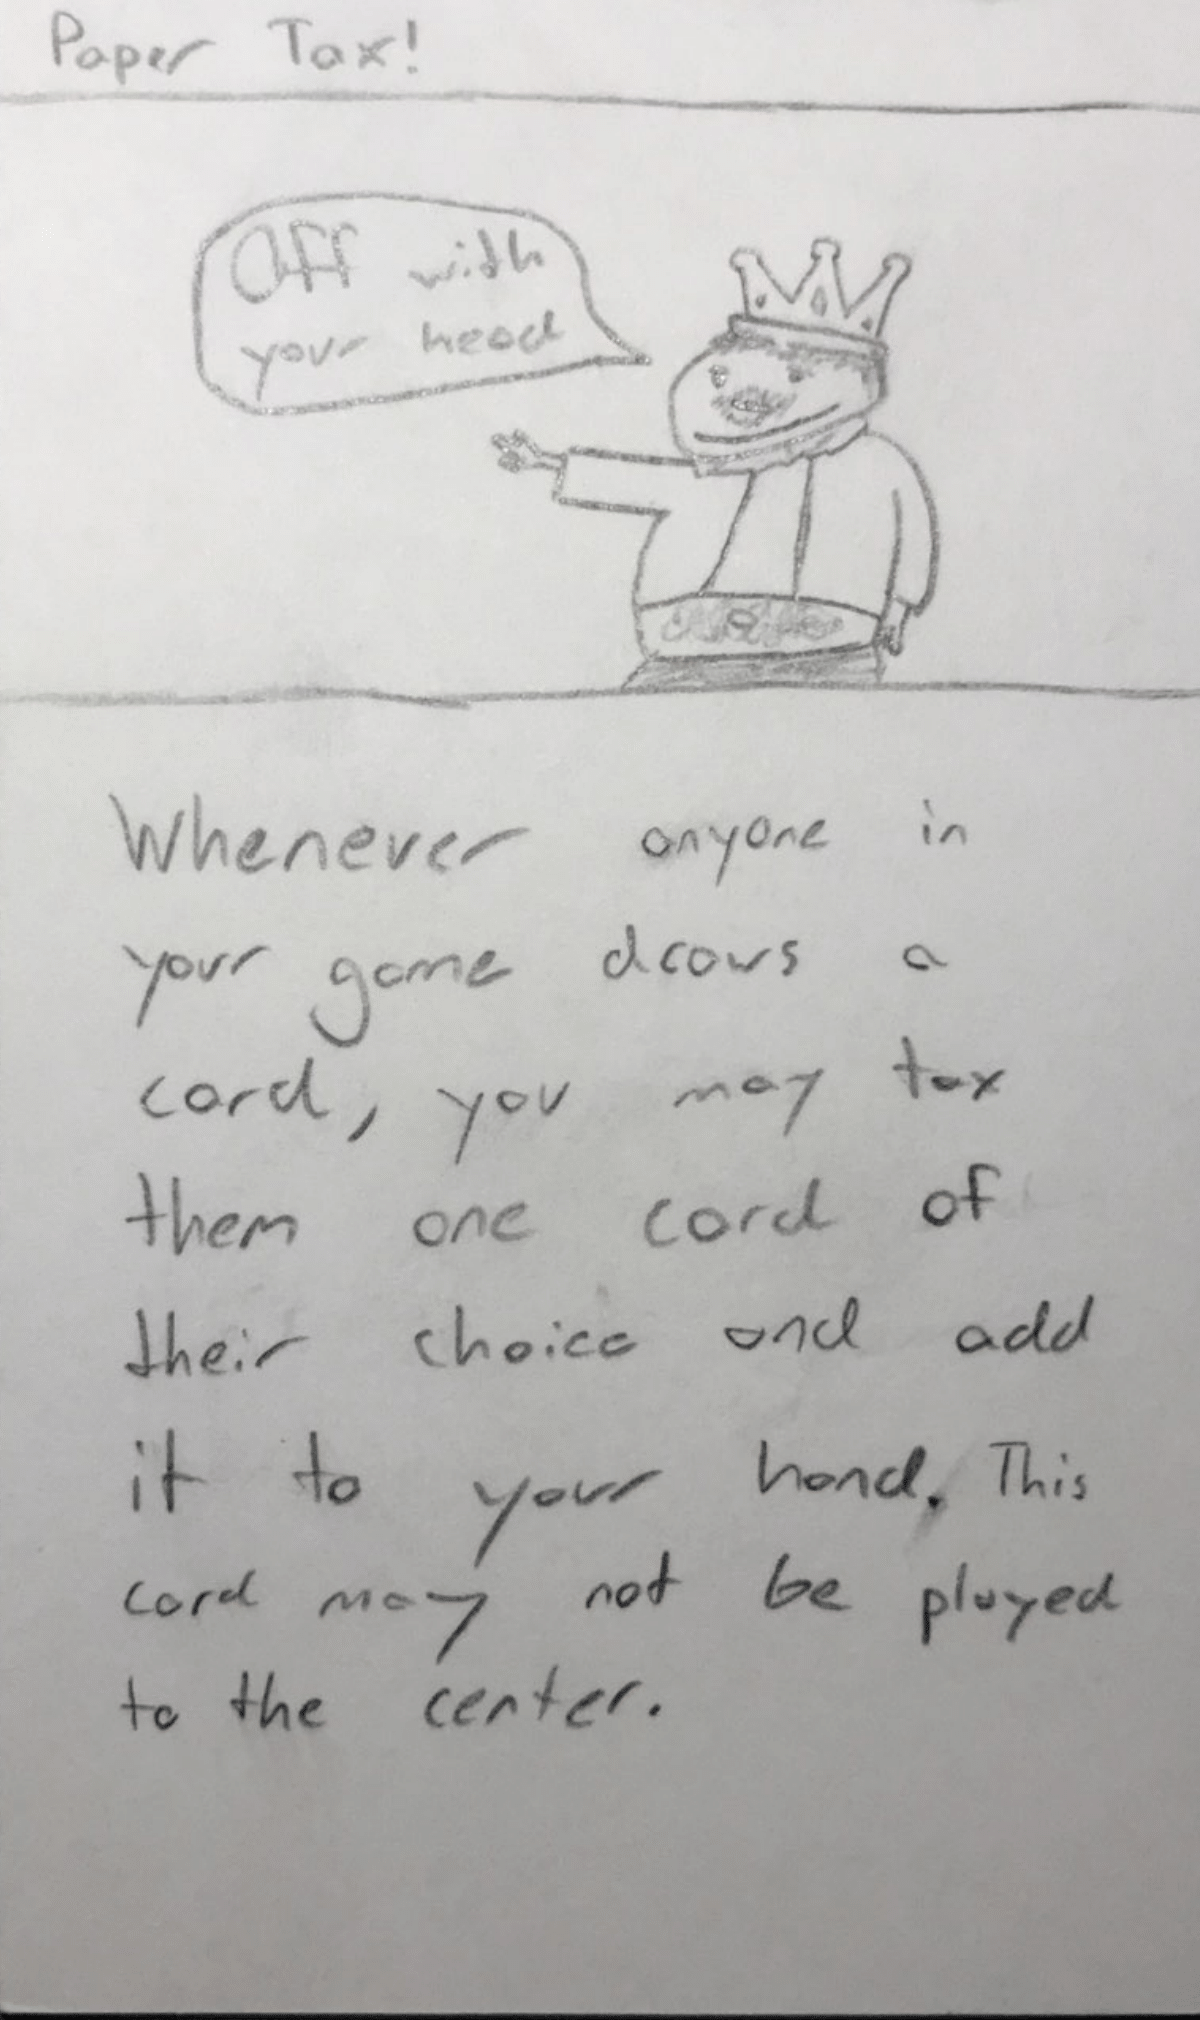 Paper Tax!
Off with
your head
Whenever anyone in
your game draws a
card, you may tax
them one card of
their choice and add
it to your hand. This
card may not be played
to the center.